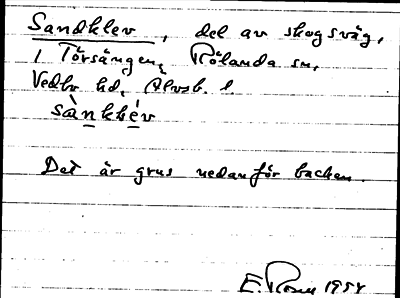 Sandklev, del av skogsväg,
i Törsängen, Rölanda sn,
Vedbo hd, Älvsb. l.
sànkḷév
Det är grus nedanför backen.
E. Rosén 1958